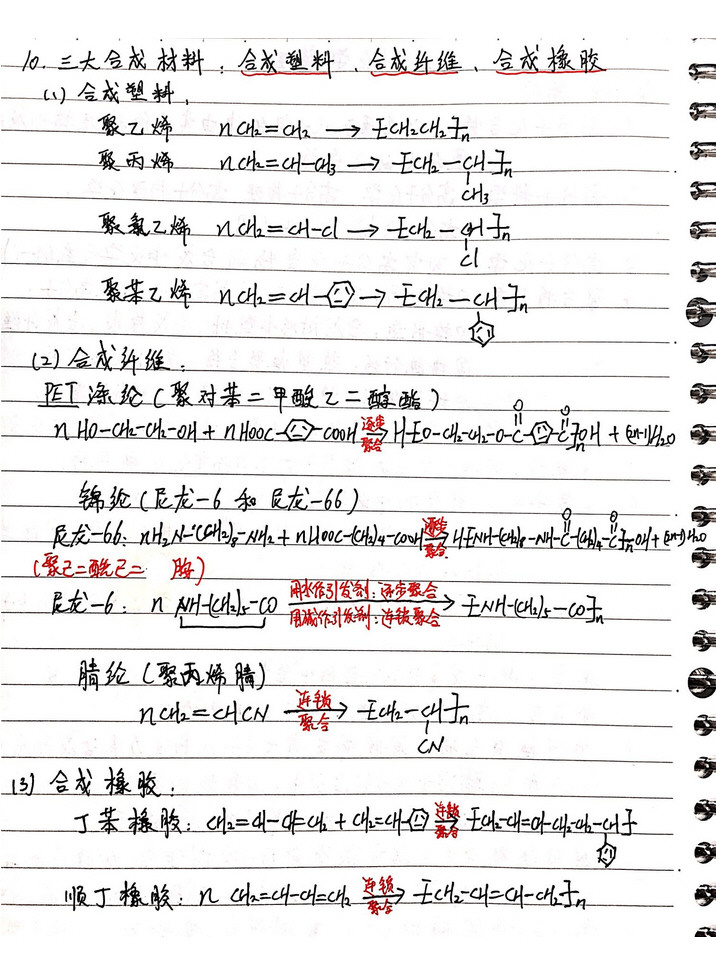 10. 三大合成材料:合成塑料、合成纤维、合成橡胶
(1) 合成塑料,
聚乙烯 nCH2=CH2 → -[CH2CH2]-n
聚丙烯 nCH2=CH-CH3 → -[CH2-CH]-n
CH3
聚氯乙烯 nCH2=CH-Cl → -[CH2-CH]-n
Cl
聚苯乙烯 nCH2=CH- → -[CH2-CH]-n
(2) 合成纤维:
PET 涤纶(聚对苯二甲酸乙二醇酯)
O O
nHO-CH2-CH2-OH + nHOOC- -COOH 逐步聚合 → H-[O-CH2-CH2-O-C- -C]-nOH + (2n-1)H2O
锦纶(尼龙-6 和 尼龙-66)
O O
尼龙-66: nH2N-(CH2)8-NH2 + nHOOC-(CH2)4-COOH 逐步聚合 → H-[NH-(CH2)8-NH-C-(CH2)4-C]-nOH + (2n-1)H2O
(聚己二酰己二 胺)
尼龙-6: n NH-(CH2)5-CO 用水作引发剂:逐步聚合 用碱作引发剂:连锁聚合 → -[NH-(CH2)5-CO]-n
腈纶(聚丙烯腈)
nCH2=CHCN 连锁聚合 → -[CH2-CH]-n
CN
(3) 合成橡胶:
丁苯橡胶: CH2=CH-CH=CH2 + CH2=CH- 连锁聚合 → -[CH2-CH=CH-CH2-CH2-CH]-
顺丁橡胶: n CH2=CH-CH=CH2 连锁聚合 → -[CH2-CH=CH-CH2]-n